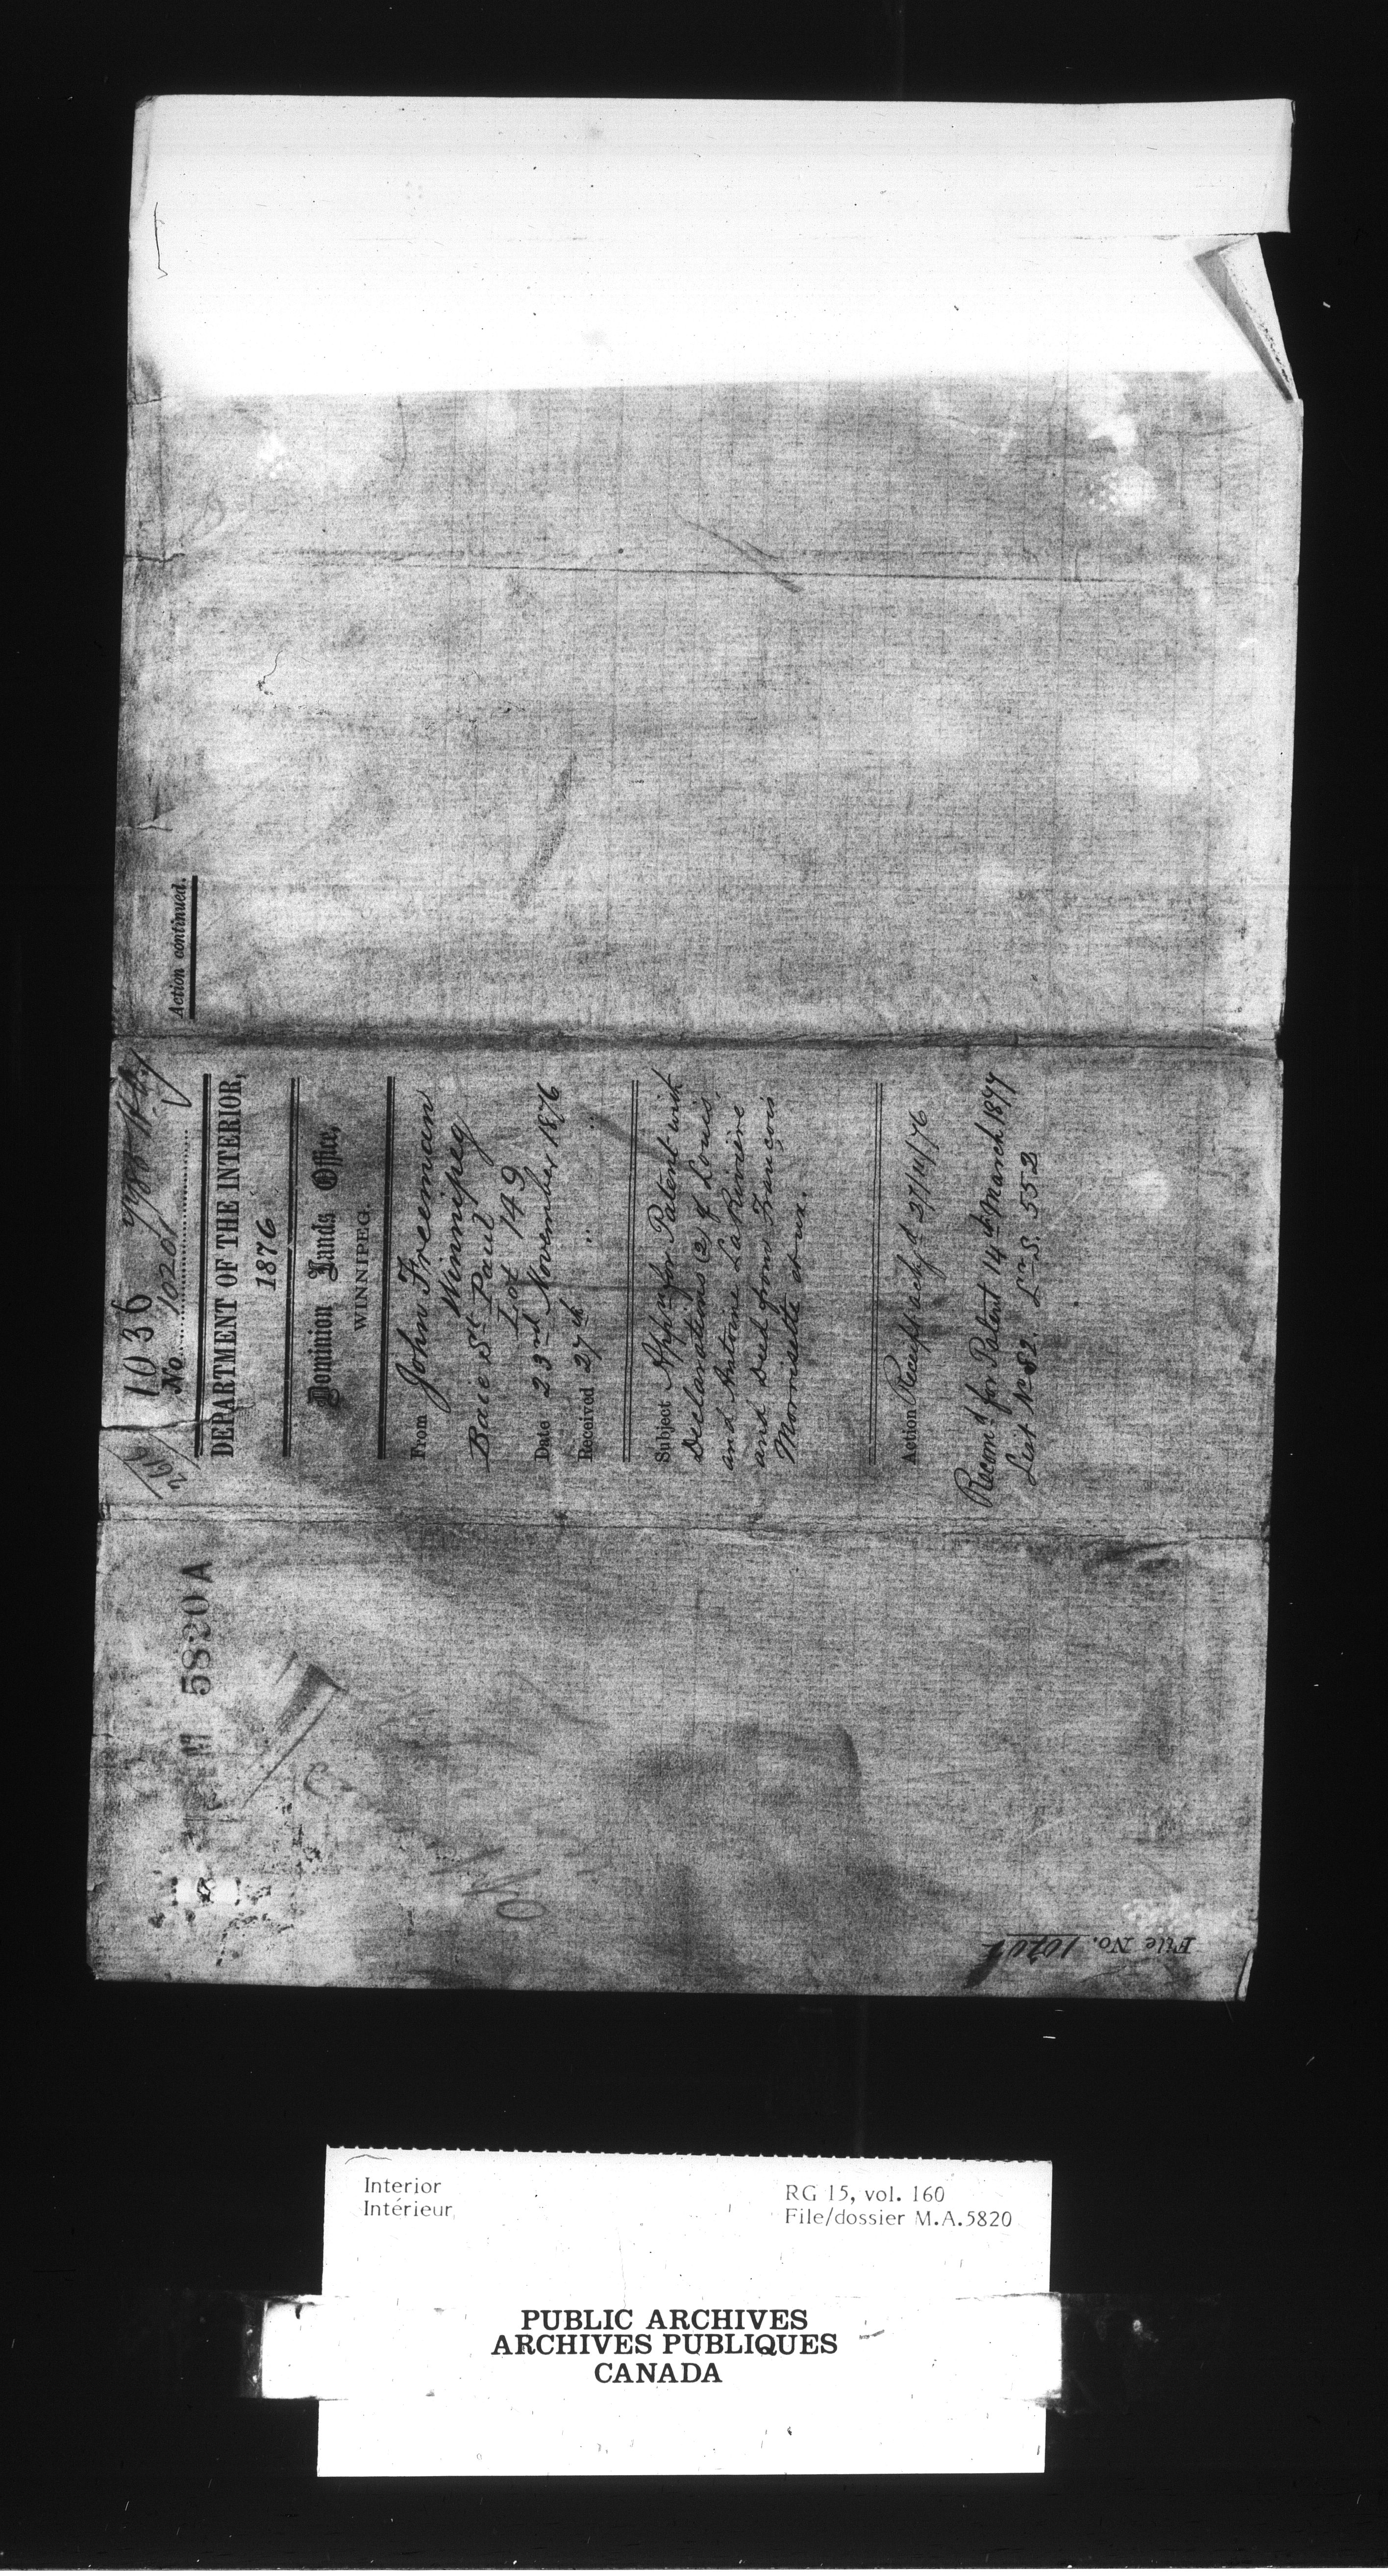 Action continued.
1036
No. 10201
DEPARTMENT OF THE INTERIOR,
1876
Dominion Lands Office,
WINNIPEG.
From John Freeman
Winnipeg
Baie St Paul
Lot 149
Date 23rd November 1876
Received 27th " "
Subject Appn for Patent with
Declarations (2) of Louis
and Antoine LaRiviere
and Deed from Francois
Morrisette et ux.
Action Receipt ackd 27/11/76
Recomd for Patent 14th March 1877
List No 82. L S. 552
M 5820 A
File No. 10201
Interior
Intérieur
RG 15, vol. 160
File/dossier M.A.5820
PUBLIC ARCHIVES
ARCHIVES PUBLIQUES
CANADA